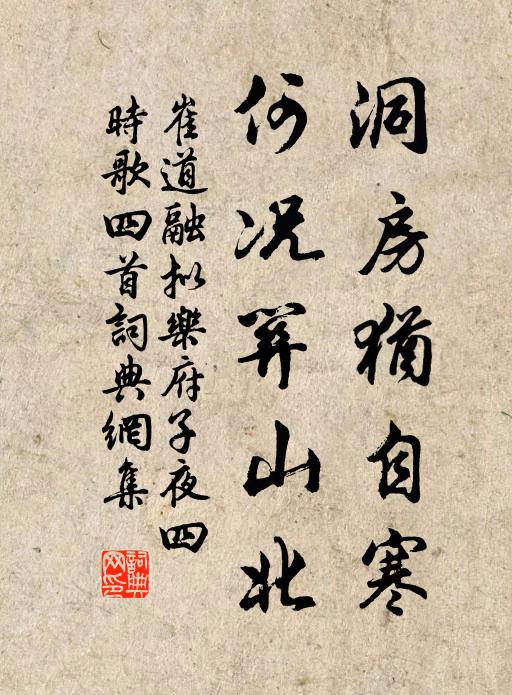 洞房猶自寒
何况關山北
崔道融擬樂府子夜四
時歌四首詞典網集
詞典
网印